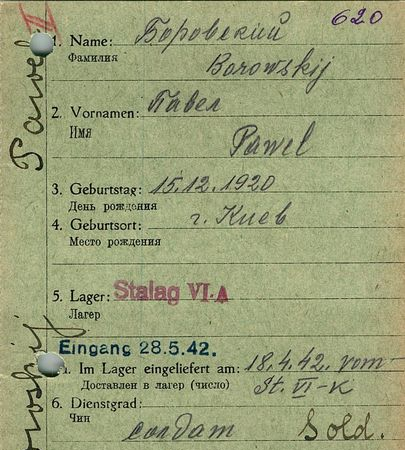 620
II
1. Name: Боровский
Фамилия
Borowskij
2. Vornamen: Павел
Имя
Pawel
3. Geburtstag: 15.12.1920
День рождения
4. Geburtsort: г. Киев
Место рождения
5. Lager: Stalag VI-A
Лагер
Eingang 28.5.42.
Im Lager eingeliefert am: 18.4.42. vom
Доставлен в лагер (число) St. VI-K
6. Dienstgrad:
Чин
солдат Sold.
Pawel